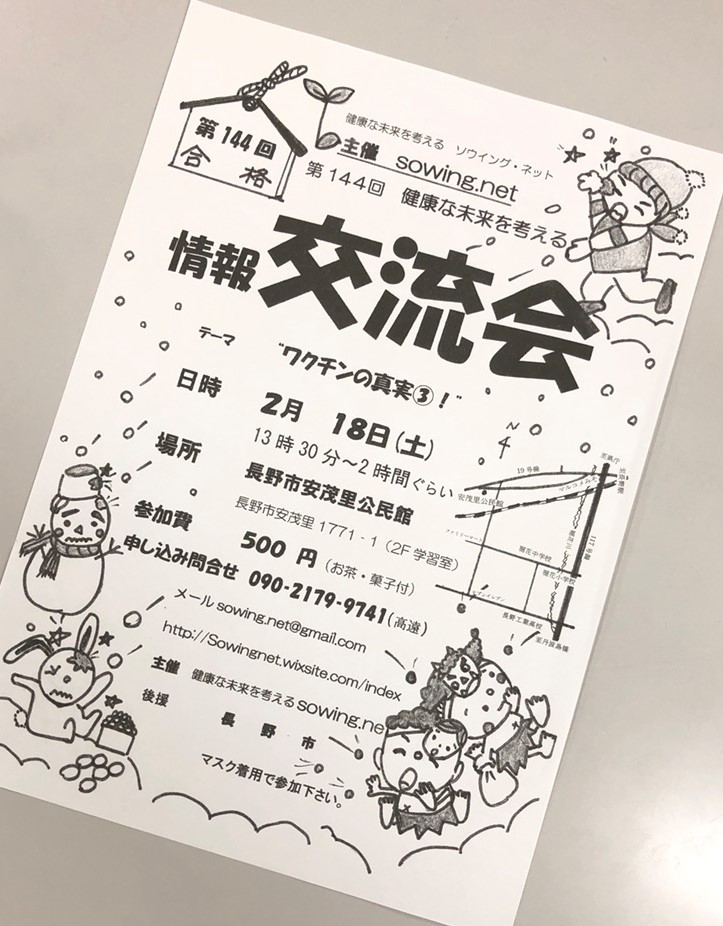 第144回
合格
健康な未来を考える ソウイング・ネット
主催 sowing.net
第144回 健康な未来を考える
情報交流会
テーマ "ワクチンの真実③!"
日時 2月 18日(土)
13時30分~2時間ぐらい
場所 長野市安茂里公民館
長野市安茂里1771-1(2F 学習室)
参加費 500 円(お茶・菓子付)
申し込み問合せ 090-2179-9741(高遠)
メール sowing.net@gmail.com
http://Sowingnet.wixsite.com/index
主催 健康な未来を考える sowing.ne
後援 長野市
マスク着用で参加下さい。
N
至県庁
19号線
安茂里公民館
117号線
ファミリーマート
裾花中学校
裾花小学校
セブンイレブン
長野工業高校
至丹波島橋